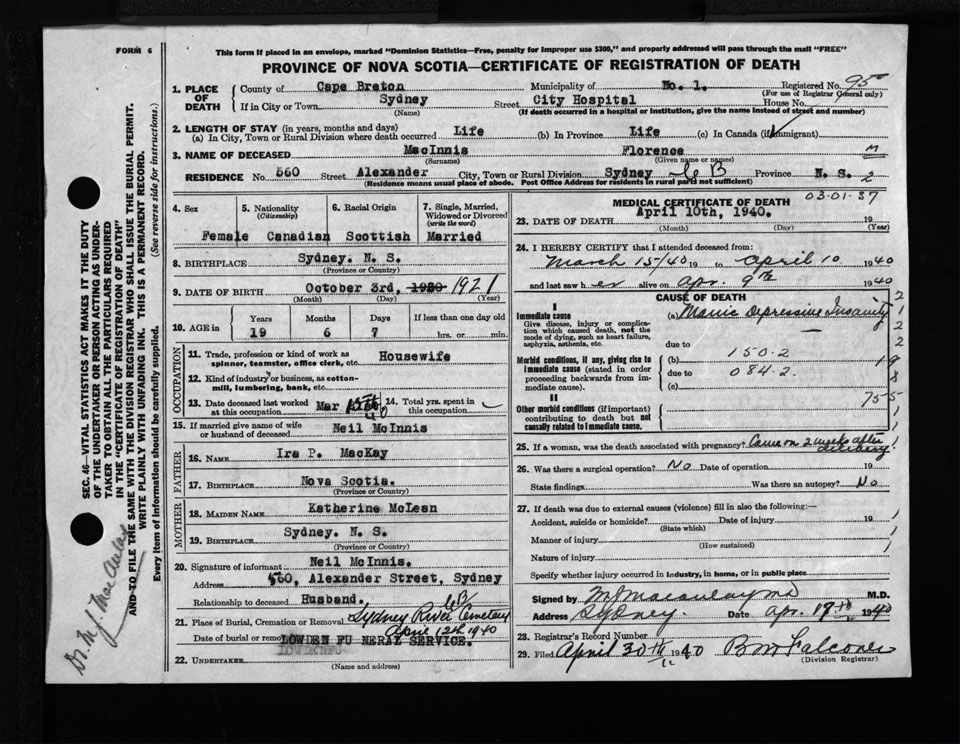 FORM 6
This form if placed in an envelope, marked "Dominion Statistics—Free, penalty for improper use $300," and properly addressed will pass through the mail "FREE"
PROVINCE OF NOVA SCOTIA—CERTIFICATE OF REGISTRATION OF DEATH
SEC. 46—VITAL STATISTICS ACT MAKES IT THE DUTY
OF THE UNDERTAKER OR PERSON ACTING AS UNDER-
TAKER TO OBTAIN ALL THE PARTICULARS REQUIRED
IN THE "CERTIFICATE OF REGISTRATION OF DEATH"
AND TO FILE THE SAME WITH THE DIVISION REGISTRAR WHO SHALL ISSUE THE BURIAL PERMIT.
WRITE PLAINLY WITH UNFADING INK. THIS IS A PERMANENT RECORD.
Every item of Information should be carefully supplied. (See reverse side for instructions.)
Dr. M. J. MacAulay
1. PLACE OF DEATH
County of Cape Breton Municipality of No. 1. Registered No. 95
(For use of Registrar General only)
If in City or Town Sydney Street City Hospital House No.
(Name) (If death occurred in a hospital or institution, give the name instead of street and number)
2. LENGTH OF STAY (in years, months and days)
(a) In City, Town or Rural Division where death occurred Life (b) In Province Life (c) In Canada (if immigrant)
3. NAME OF DECEASED MacInnis Florence M
(Surname) (Given name or names)
RESIDENCE No. 560 Street Alexander City, Town or Rural Division Sydney C B Province N. S. 2
(Residence means usual place of abode. Post Office Address for residents in rural parts not sufficient)
4. Sex Female
5. Nationality (Citizenship) Canadian
6. Racial Origin Scottish
7. Single, Married, Widowed or Divorced (write the word) Married
8. BIRTHPLACE Sydney. N. S.
(Province or Country)
9. DATE OF BIRTH October 3rd, 1920 1921
(Month) (Day) (Year)
10. AGE in Years Months Days If less than one day old
19 6 7 hrs. or min.
OCCUPATION
11. Trade, profession or kind of work as spinner, teamster, office clerk, etc. Housewife
12. Kind of industry or business, as cotton-mill, lumbering, bank, etc.
13. Date deceased last worked at this occupation Mar 40
14. Total yrs. spent in this occupation
15. If married give name of wife or husband of deceased Neil McInnis
FATHER
16. NAME Ira P. MacKay
17. BIRTHPLACE Nova Scotia.
(Province or Country)
MOTHER
18. MAIDEN NAME Katherine McLean
19. BIRTHPLACE Sydney. N. S.
(Province or Country)
20. Signature of informant Neil McInnis.
Address 560, Alexander Street, Sydney
Relationship to deceased Husband.
21. Place of Burial, Cremation or Removal Sydney River CB Cemetery
Date of burial or removal April 12th 1940
LOWDEN FUNERAL SERVICE.
LOWDENFU
22. UNDERTAKER
(Name and address)
MEDICAL CERTIFICATE OF DEATH 03-01-37
23. DATE OF DEATH April 10th, 1940. 19
(Month) (Day) (Year)
24. I HEREBY CERTIFY that I attended deceased from:
March 15/40 19 to April 10 1940
and last saw her alive on Apr. 9th 1940
CAUSE OF DEATH
I
Immediate cause
Give disease, injury or complication which caused death, not the mode of dying, such as heart failure, asphyxia, asthenia, etc.
(a) Manic Depressive Insanity
due to
Morbid conditions, if any, giving rise to immediate cause (stated in order proceeding backwards from immediate cause).
(b) 150.2
due to 084.2
(c)
II
Other morbid conditions (if important) contributing to death but not causally related to immediate cause.
755
25. If a woman, was the death associated with pregnancy? Came on 2 weeks after delivery
26. Was there a surgical operation? No Date of operation 19
State findings Was there an autopsy? No
27. If death was due to external causes (violence) fill in also the following:—
Accident, suicide or homicide? Date of injury 19
(State which)
Manner of injury
(How sustained)
Nature of injury
Specify whether injury occurred in industry, in home, or in public place
Signed by M J Macaulay MD M.D.
Address Sydney. Date Apr. 19th 1940
28. Registrar's Record Number
29. Filed April 30th 1940 B M Falconer
(Division Registrar)